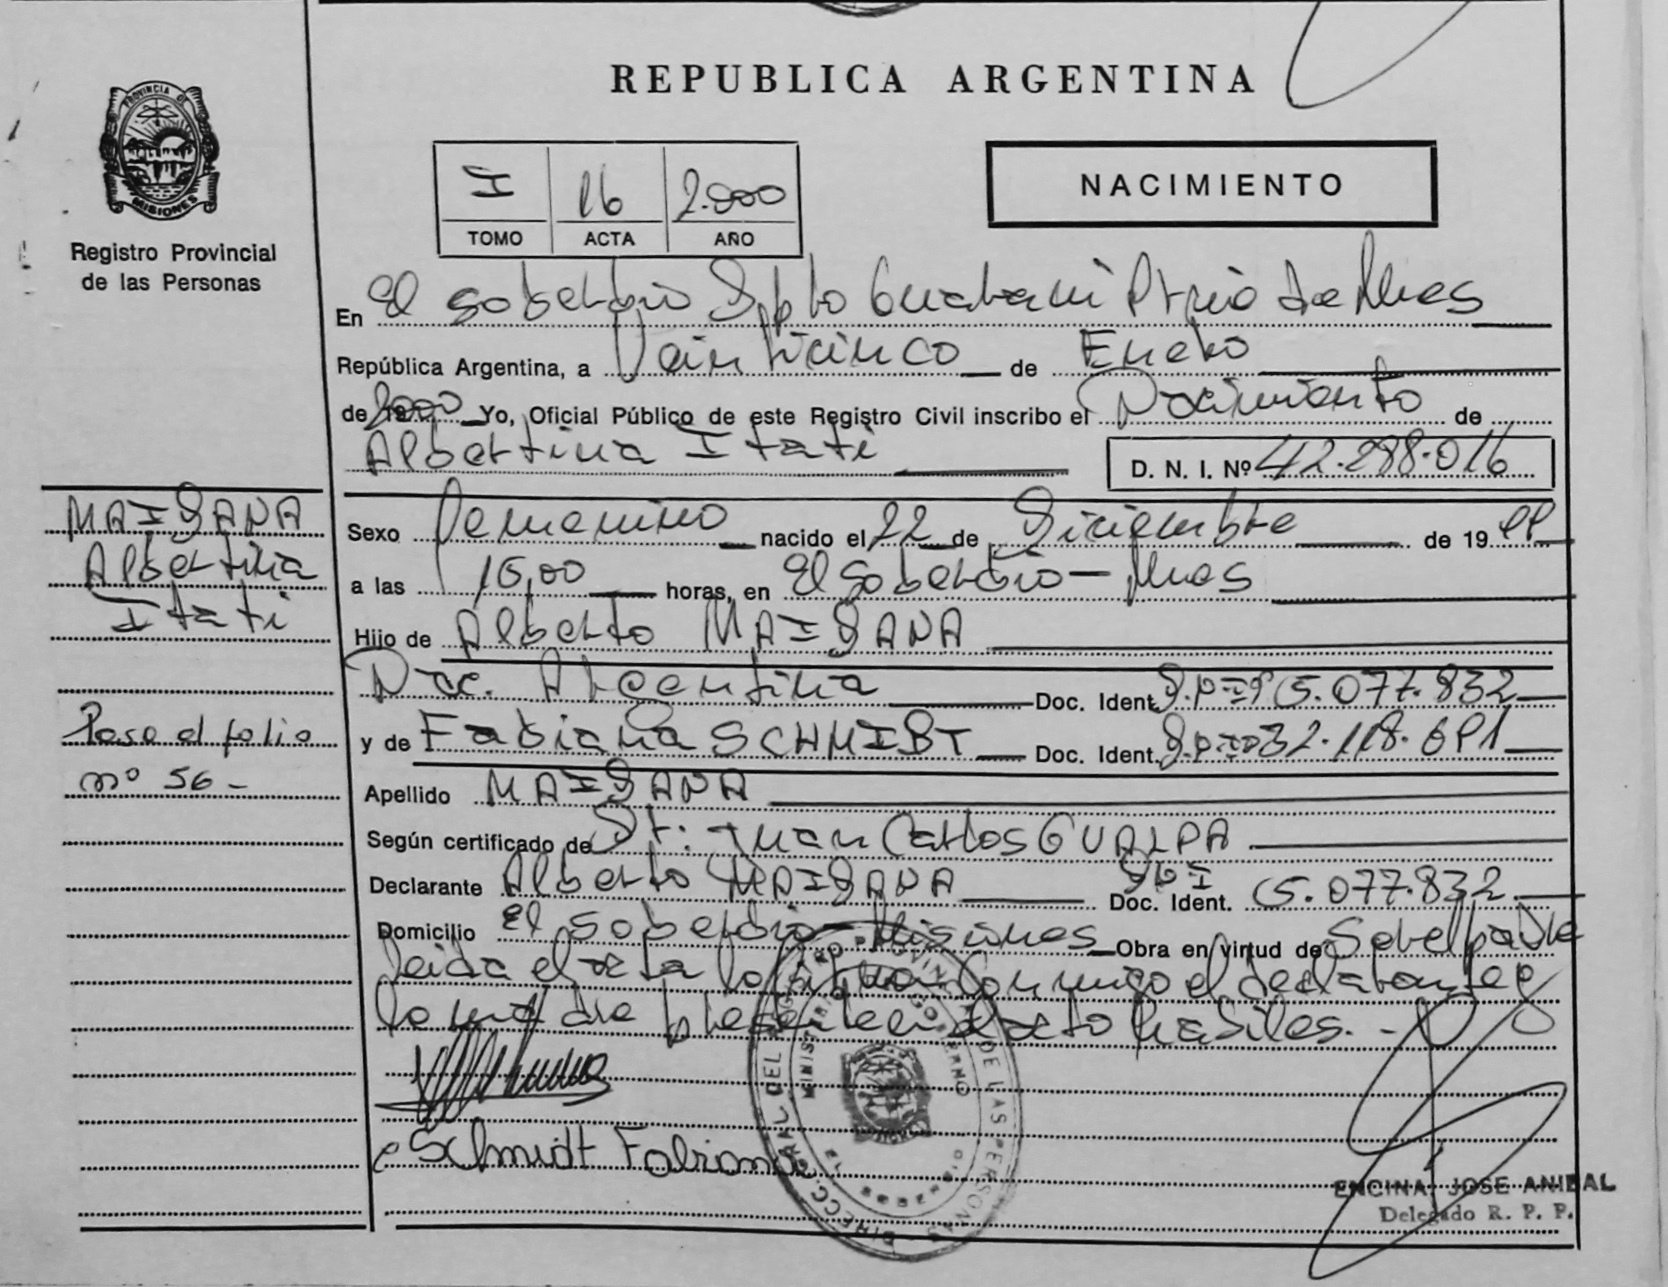 REPUBLICA ARGENTINA
PROVINCIA DE
MISIONES
Registro Provincial
de las Personas
I 16 2.000
TOMO ACTA AÑO
NACIMIENTO
En El Soberbio Dpto Guarani Pcia de Mnes
República Argentina, a Veinticinco de Enero
de 2000 Yo, Oficial Público de este Registro Civil inscribo el Nacimiento de
Albertina Itati
D. N. I. Nº 42.288.016
MAIDANA
Albertina
Itati
Sexo Femenino nacido el 22 de Diciembre de 19 99
a las 15,00 horas, en El Soberbio - Mnes
Hijo de Alberto MAIDANA
Nac. Argentina Doc. Ident. D.N.I 5.077.832
y de Fabiana SCHMIDT Doc. Ident. D.N.I 32.118.691
Pase al folio
nº 56 -
Apellido MAIDANA
Según certificado de Dr. Juan Carlos GUALPA
Declarante Alberto MAIDANA Doc. Ident. DNI 5.077.832
Domicilio El Soberbio - Misiones Obra en virtud de Ser el padre
leida el acta la firman conmigo el declarante e
la madre presente en el acto habiles. -
Schmidt Fabiana
DIRECC. GRAL DEL REGISTRO PROVINCIAL DE LAS PERSONAS
MINISTERIO GOBIERNO
EL SOBERBIO
ENCINA JOSE ANIBAL
Delegado R. P. P.